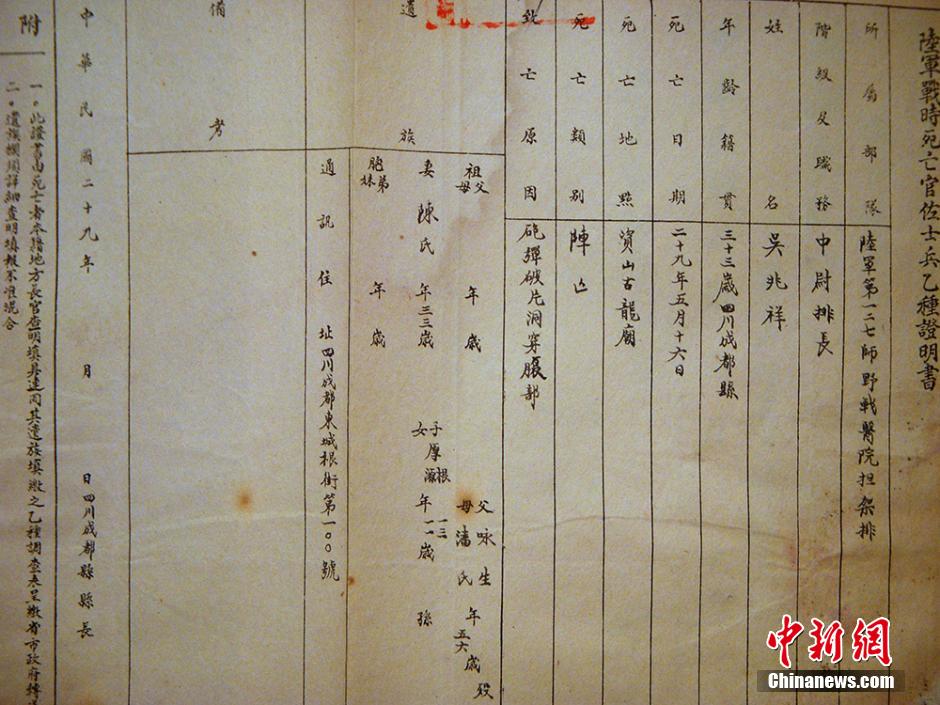 陸軍戰時死亡官佐士兵乙種證明書
所屬部隊 陸軍第一二七師野戰醫院担架排
階級及職務 中尉排長
姓名 吳兆祥
年齡籍貫 三十三歲四川成都縣
死亡日期 二十九年五月十六日
死亡地點 資山古龍廟
死亡類別 陣亡
致亡原因 砲彈破片洞穿腹部
遺族
祖父母 年歲 父詠生 年五六歲歿
母潘氏
妻陳氏 年三三歲 子女厚根源 年一三一二歲 孫
胞弟妹 年歲
通訊住址 四川成都東城根街第一〇〇號
備考
中華民國二十九年 月 日四川成都縣縣長
附
一。此證書由死亡者本籍地方長官查明填具連同其遺族填繳之乙種調查表呈繳省市政府轉
二。遺族欄須詳細查明填報不准混合
中新網
Chinanews.com